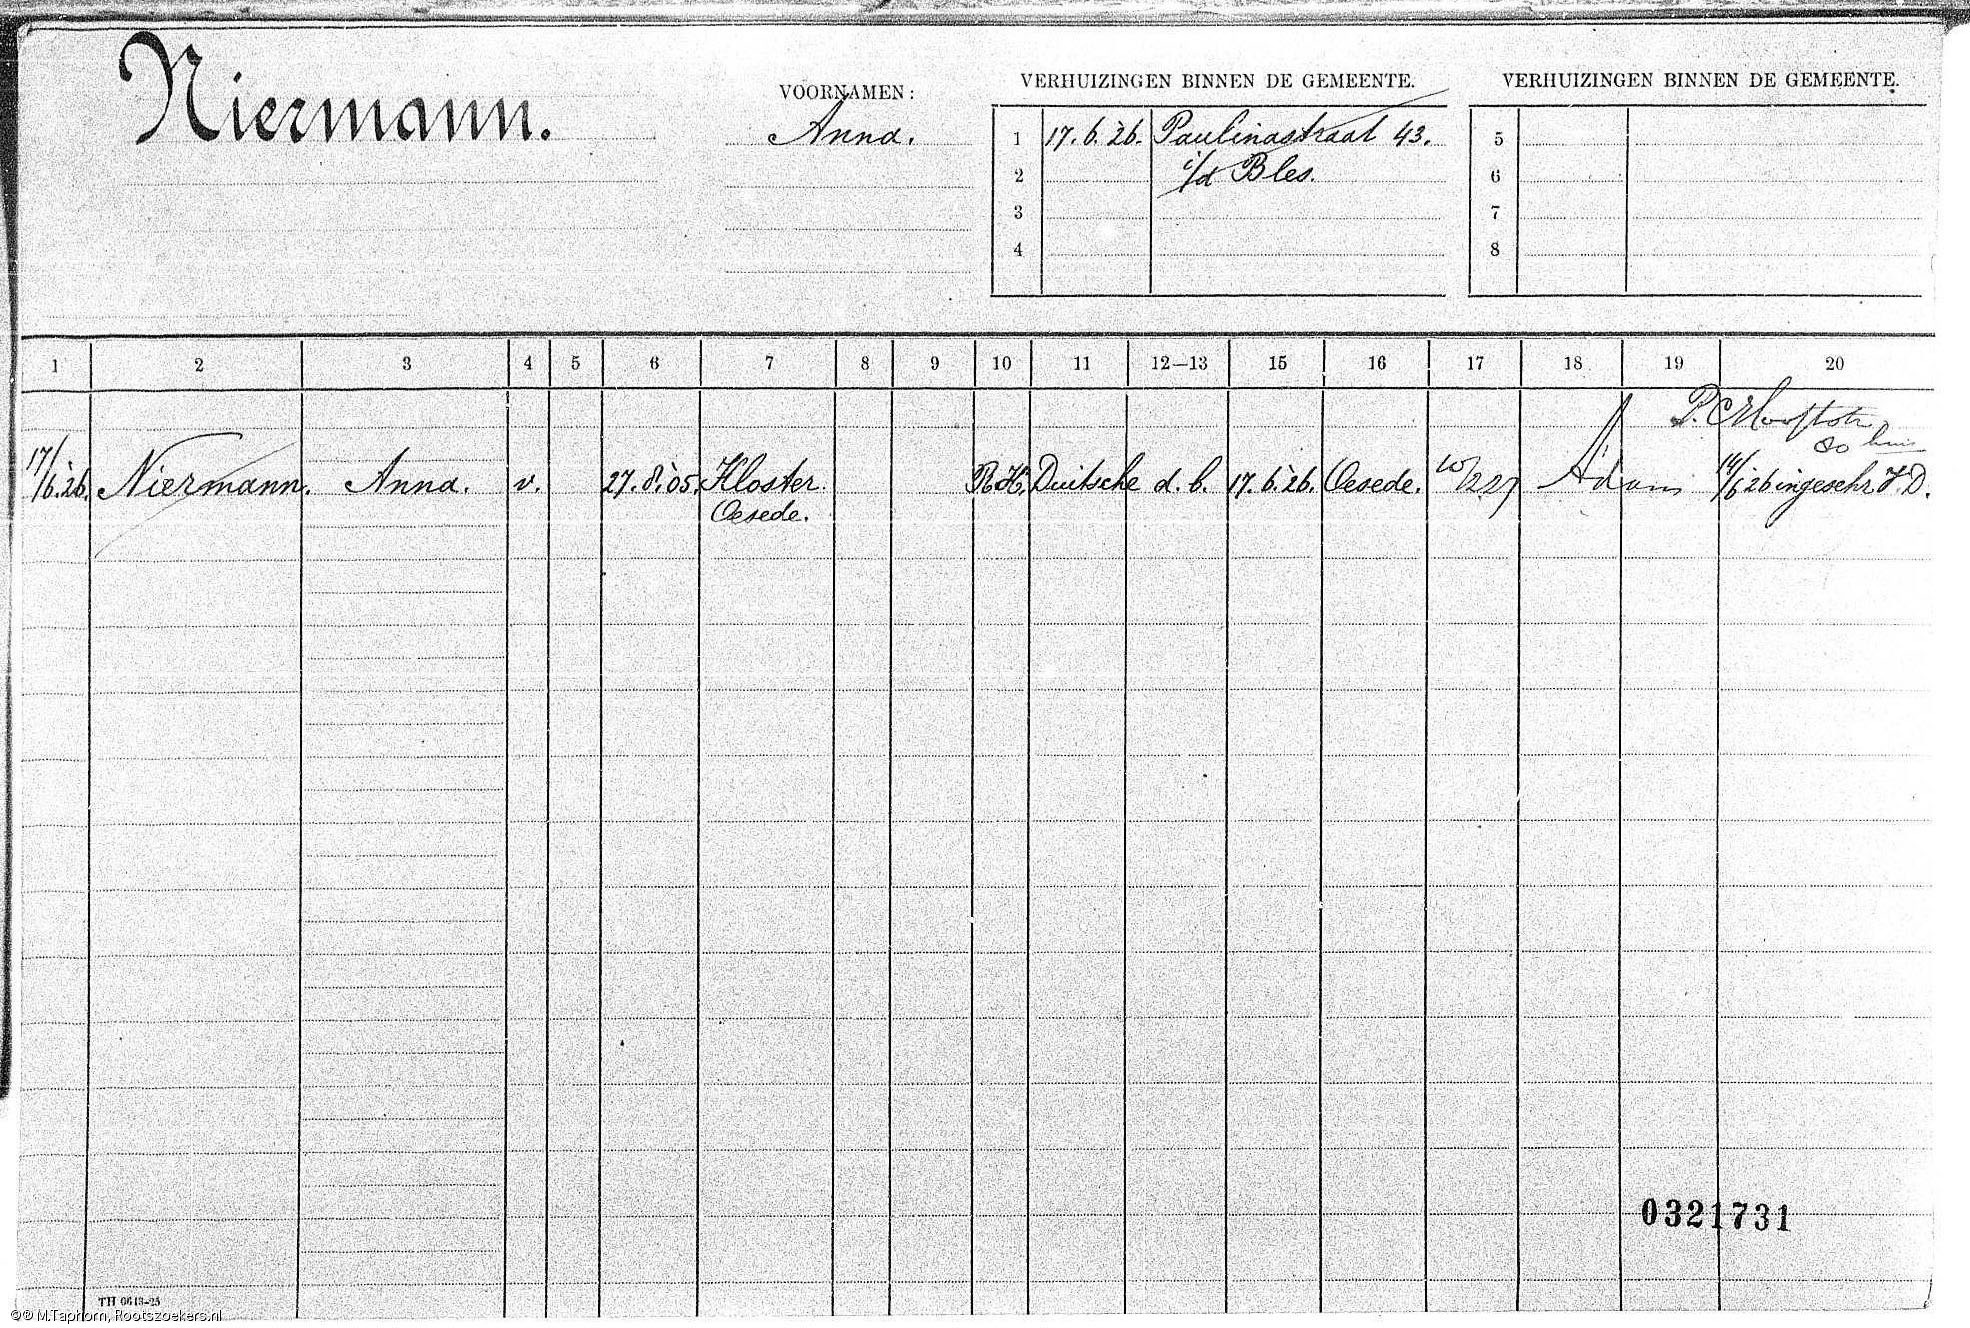 Niermann.
VOORNAMEN:
Anna.
VERHUIZINGEN BINNEN DE GEMEENTE.
1 17.6.'26. Paulinastraat 43.
2 i/d Bles.
3
4
VERHUIZINGEN BINNEN DE GEMEENTE.
5
6
7
8
1 2 3 4 5 6 7 8 9 10 11 12—13 15 16 17 18 19 20
P.C. Hooftstr
80 huis
17/6.'26. Niermann. Anna. v. 27.8.'05. Kloster R.K. Duitsche d.b. 17.6.'26. Oesede. 10/2 27 A'dam 14/6 26 ingeschr. V.D.
Oesede.
0321731
TH 0613-25
©® M.Taphorn, Rootszoekers.nl